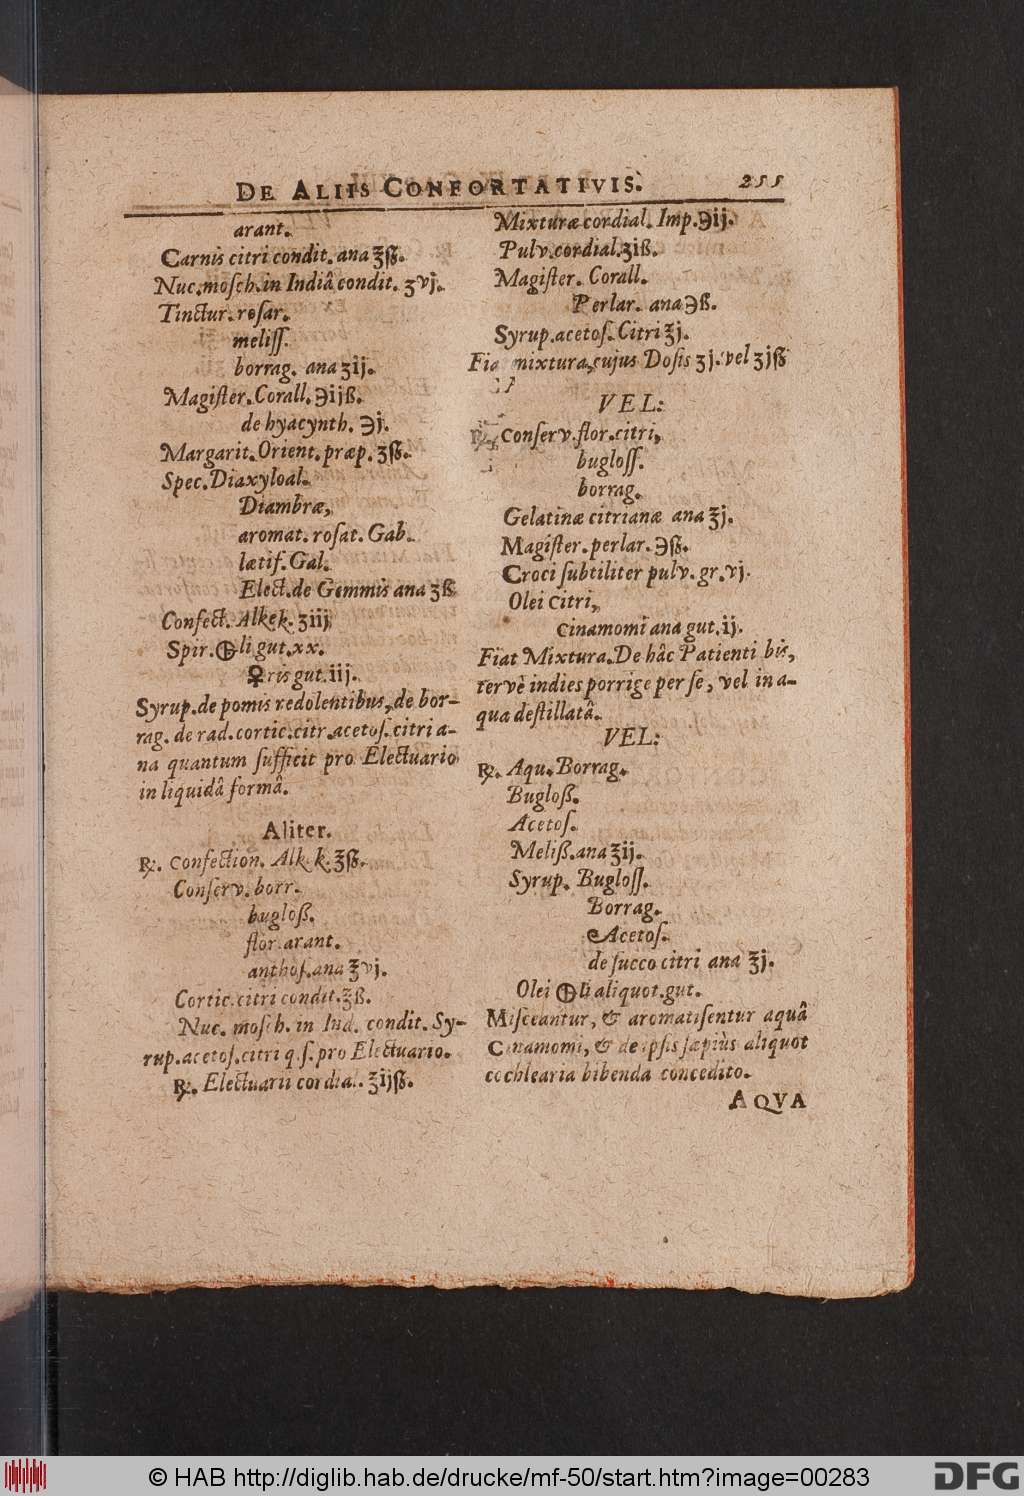 DE ALIIS CONFORTATIVIS. 255
arant.
Carnis citri condit. ana ℥ſß.
Nuc. moſch. in Indiâ condit. ʒvj.
Tinctur. roſar.
meliſſ.
borrag. ana ʒij.
Magiſter. Corall. ℈ijß.
de hyacynth. ℈j.
Margarit. Orient. præp. ʒſß.
Spec. Diaxyloal.
Diambræ,
aromat. roſat. Gab.
lætif. Gal.
Elect. de Gemmis ana ʒß
Confect. Alkek. ʒiij
Spir. 🜨li gut. xx.
♀ris gut. iij.
Syrup. de pomis redolentibus, de bor-
rag. de rad. cortic. citr. acetoſ. citri a-
na quantum ſufficit pro Electuario
in liquidâ formâ.
Aliter.
℞. Confection. Alk. k. ℥ſß.
Conſerv. borr.
bugloß.
flor. arant.
anthoſ. ana ℥vj.
Cortic. citri condit. ℥ß.
Nuc. moſch. in Ind. condit. Sy-
rup. acetoſ. citri q. ſ. pro Electuario.
℞. Electuarii cordial. ℥ijſß.
Mixturæ cordial. Imp. ℈ij.
Pulv. cordial. ʒiß.
Magiſter. Corall.
Perlar. ana ℈ß.
Syrup. acetoſ. Citri ℥j.
Fia mixtura, cujus Doſis ʒj. vel ʒjſß
VEL:
℞. Conſerv. flor. citri,
bugloſſ.
borrag.
Gelatinæ citrianæ ana ℥j.
Magiſter. perlar. ℈ſß.
Croci ſubtiliter pulv. gr. vj.
Olei Citri,
Cinamomi ana gut. ij.
Fiat Mixtura. De hâc Patienti bis,
tervè indies porrige per ſe, vel in a-
qua deſtillatâ.
VEL:
℞. Aqu. Borrag.
Bugloß.
Acetoſ.
Meliß. ana ℥ij.
Syrup. Bugloſſ.
Borrag.
Acetoſ.
de ſucco citri ana ℥j.
Olei 🜨li aliquot. gut.
Miſceantur, & aromatiſentur aquâ
Cinamomi, & de ipſis ſæpiùs aliquot
cochlearia bibenda concedito.
AQVA
© HAB http://diglib.hab.de/drucke/mf-50/start.htm?image=00283
DFG